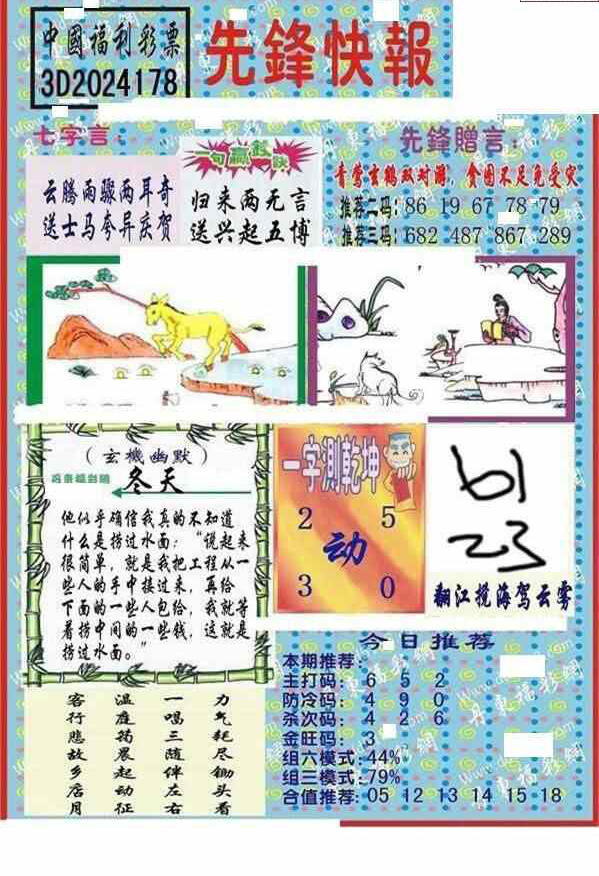 中國福利彩票
3D2024178
先鋒快報
七字言：
云腾雨骤两耳奇
送士马夸异庆贺
归来两无言
送兴起五博
先鋒贈言：
青莺玄鹤双对游，食困不足免受灾
推荐二码：86 19 67 78 79
推荐三码：682 487 867 289
（玄機幽默）
冬天
他似乎确信我真的不知道
什么是捞过水面：“说起来
很简单，就是我把工程从一
些人的手中接过来，再给
下面的一些人包给，我就等
着捞中间的一些钱，这就是
捞过水面。”
一字測乾坤
2 5
动
3 0
61
23
翻江搅海驾云雾
客 温 一 力
行 庭 唱 气
悲 筠 三 耗
故 晨 随 尽
乡 起 伴 锄
店 动 左 头
月 征 右 看
今日推荐
本期推荐：
主打码：6 5 2
防冷码：4 9 0
杀次码：4 2 6
金旺码：3
组六模式：44%
组三模式：79%
合值推荐：05 12 13 14 15 18